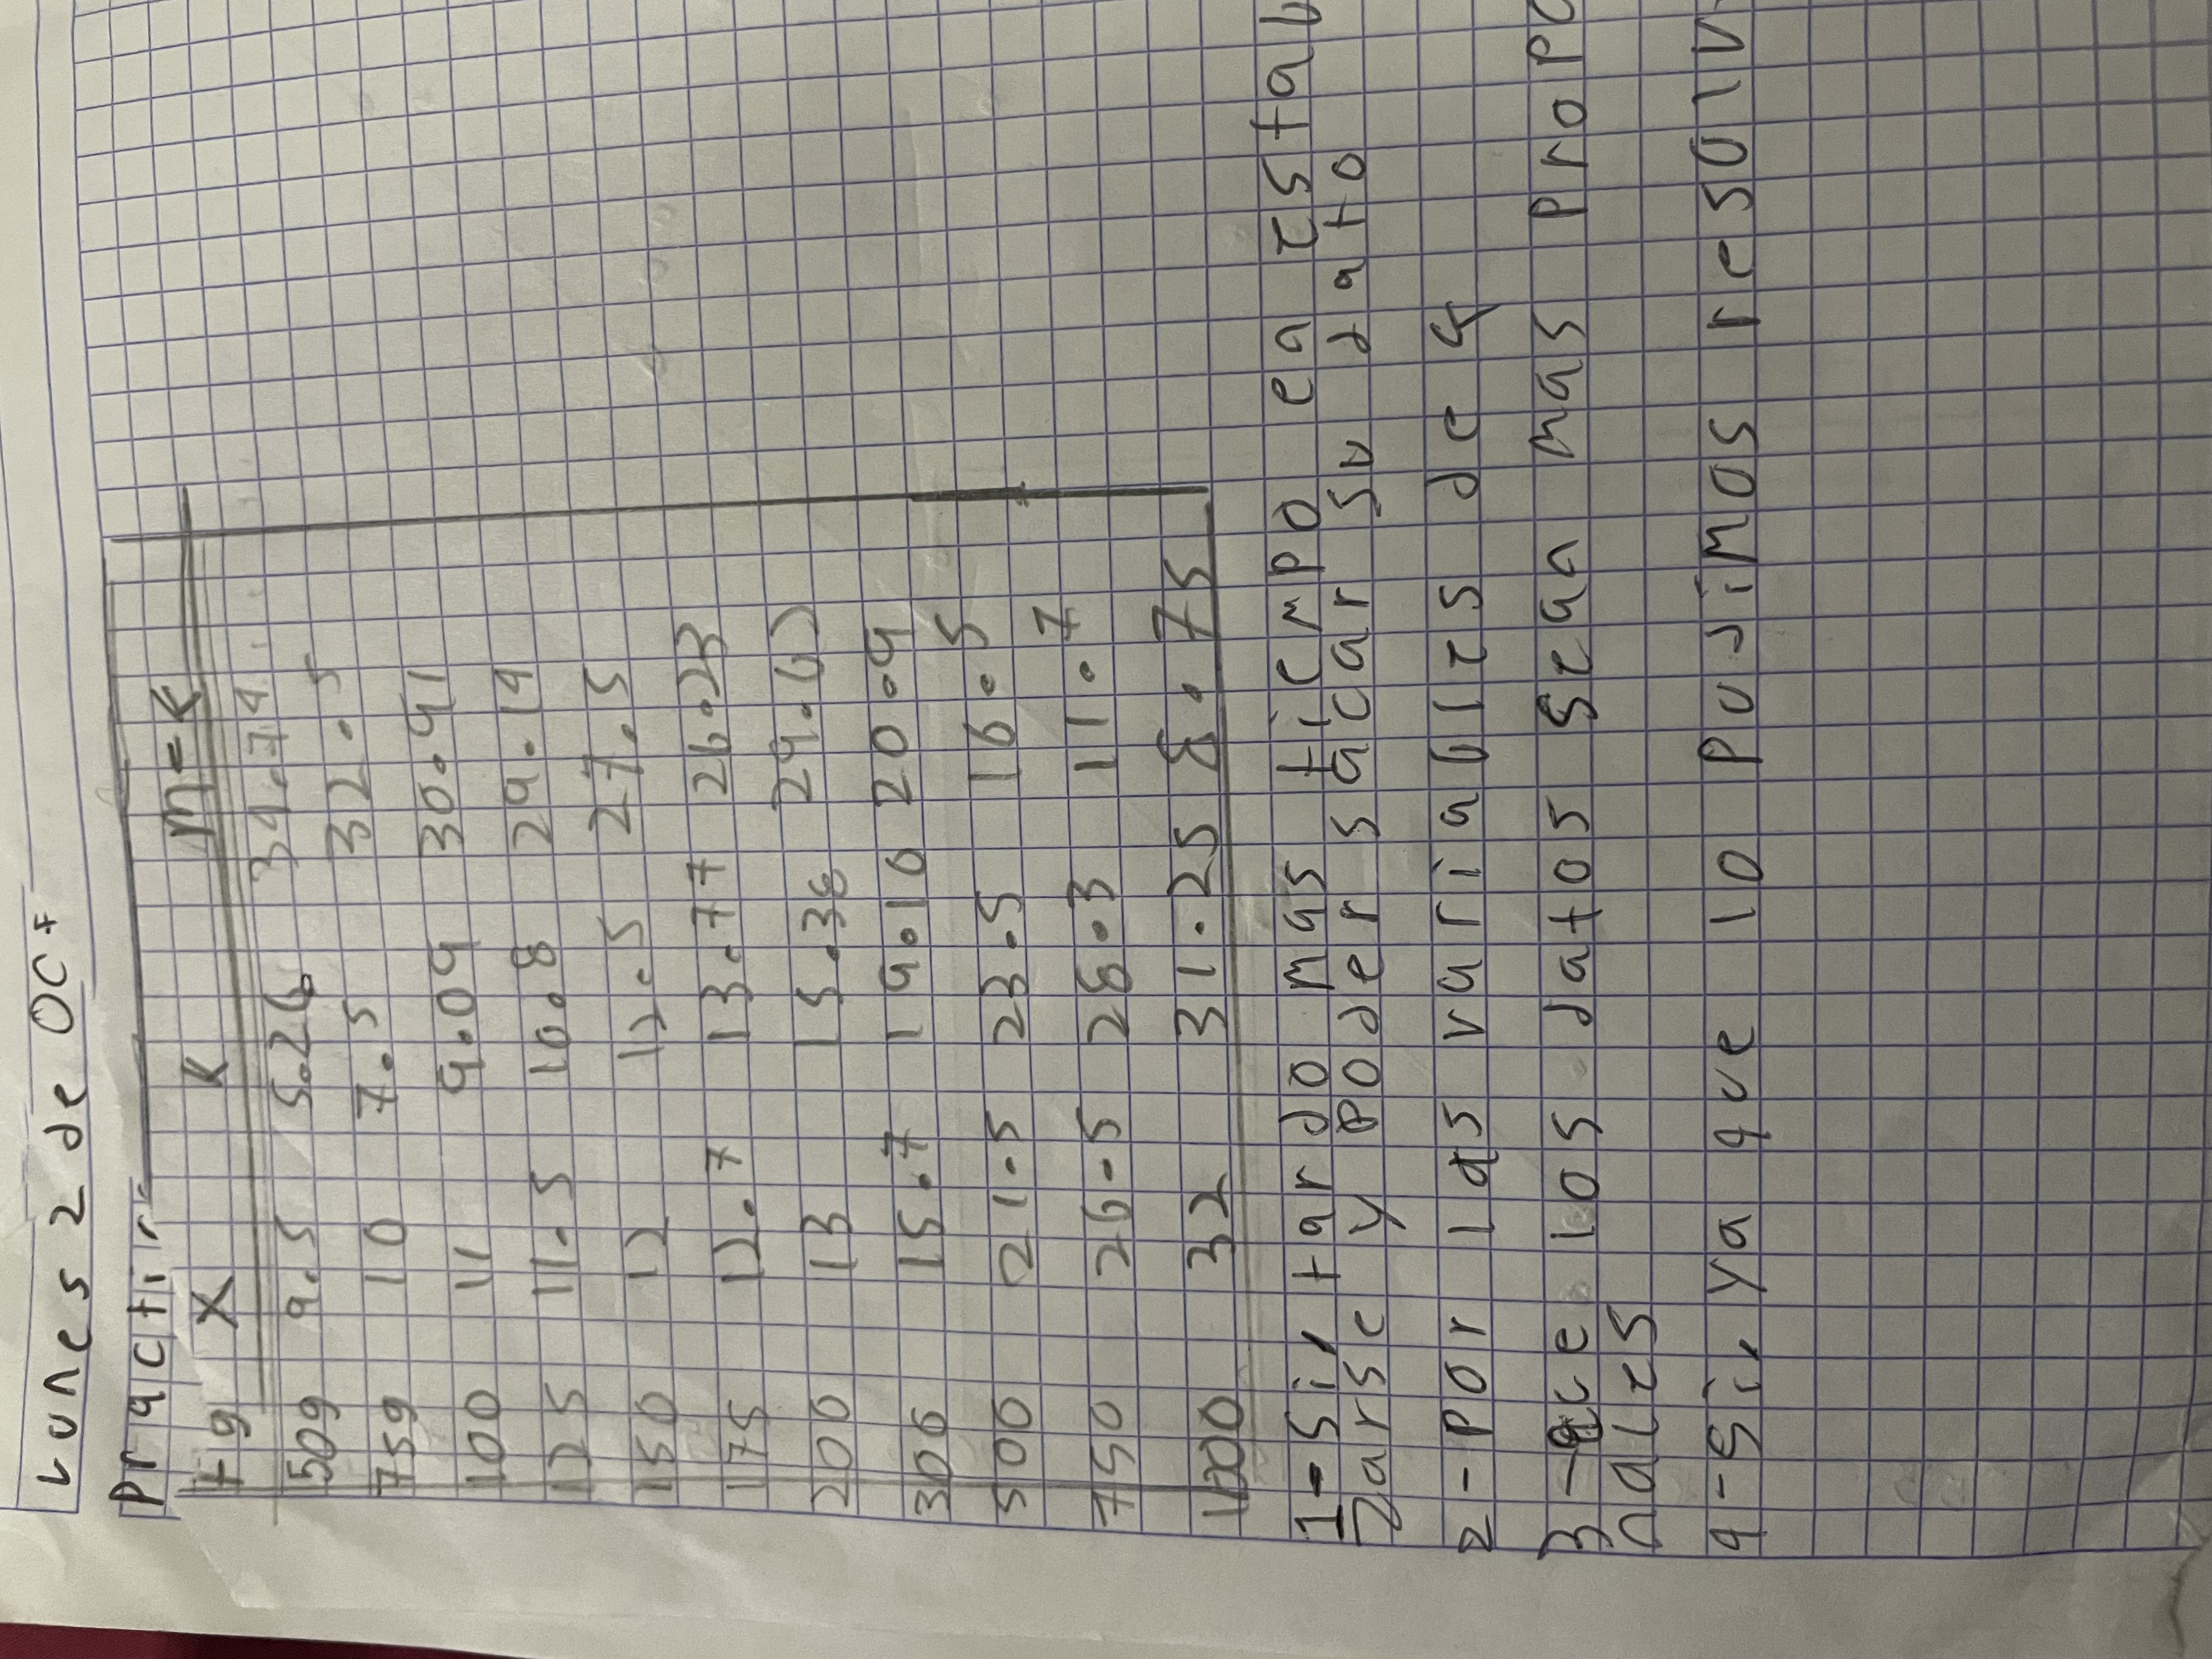 Lunes 2 de OCt
Practi
Fg X K m-K
50g 9.5 5.26 34.74
75g 10 7.5 32.5
100 11 9.09 30.91
125 11.5 10.8 29.14
150 12 12.5 27.5
175 12.7 13.77 26.23
200 13 15.38
300 15.7 19.10 20.9
500 21.5 23.5 16.5
750 26.5 28.3 11.7
1000 32 31.25 8.75
1-Si, tardo mas tiempo en estab
zarse y poder sacar su dato
2-Por las variables de
3-que los datos sean mas Propo
nales
4-Si, ya que lo pudimos resolv